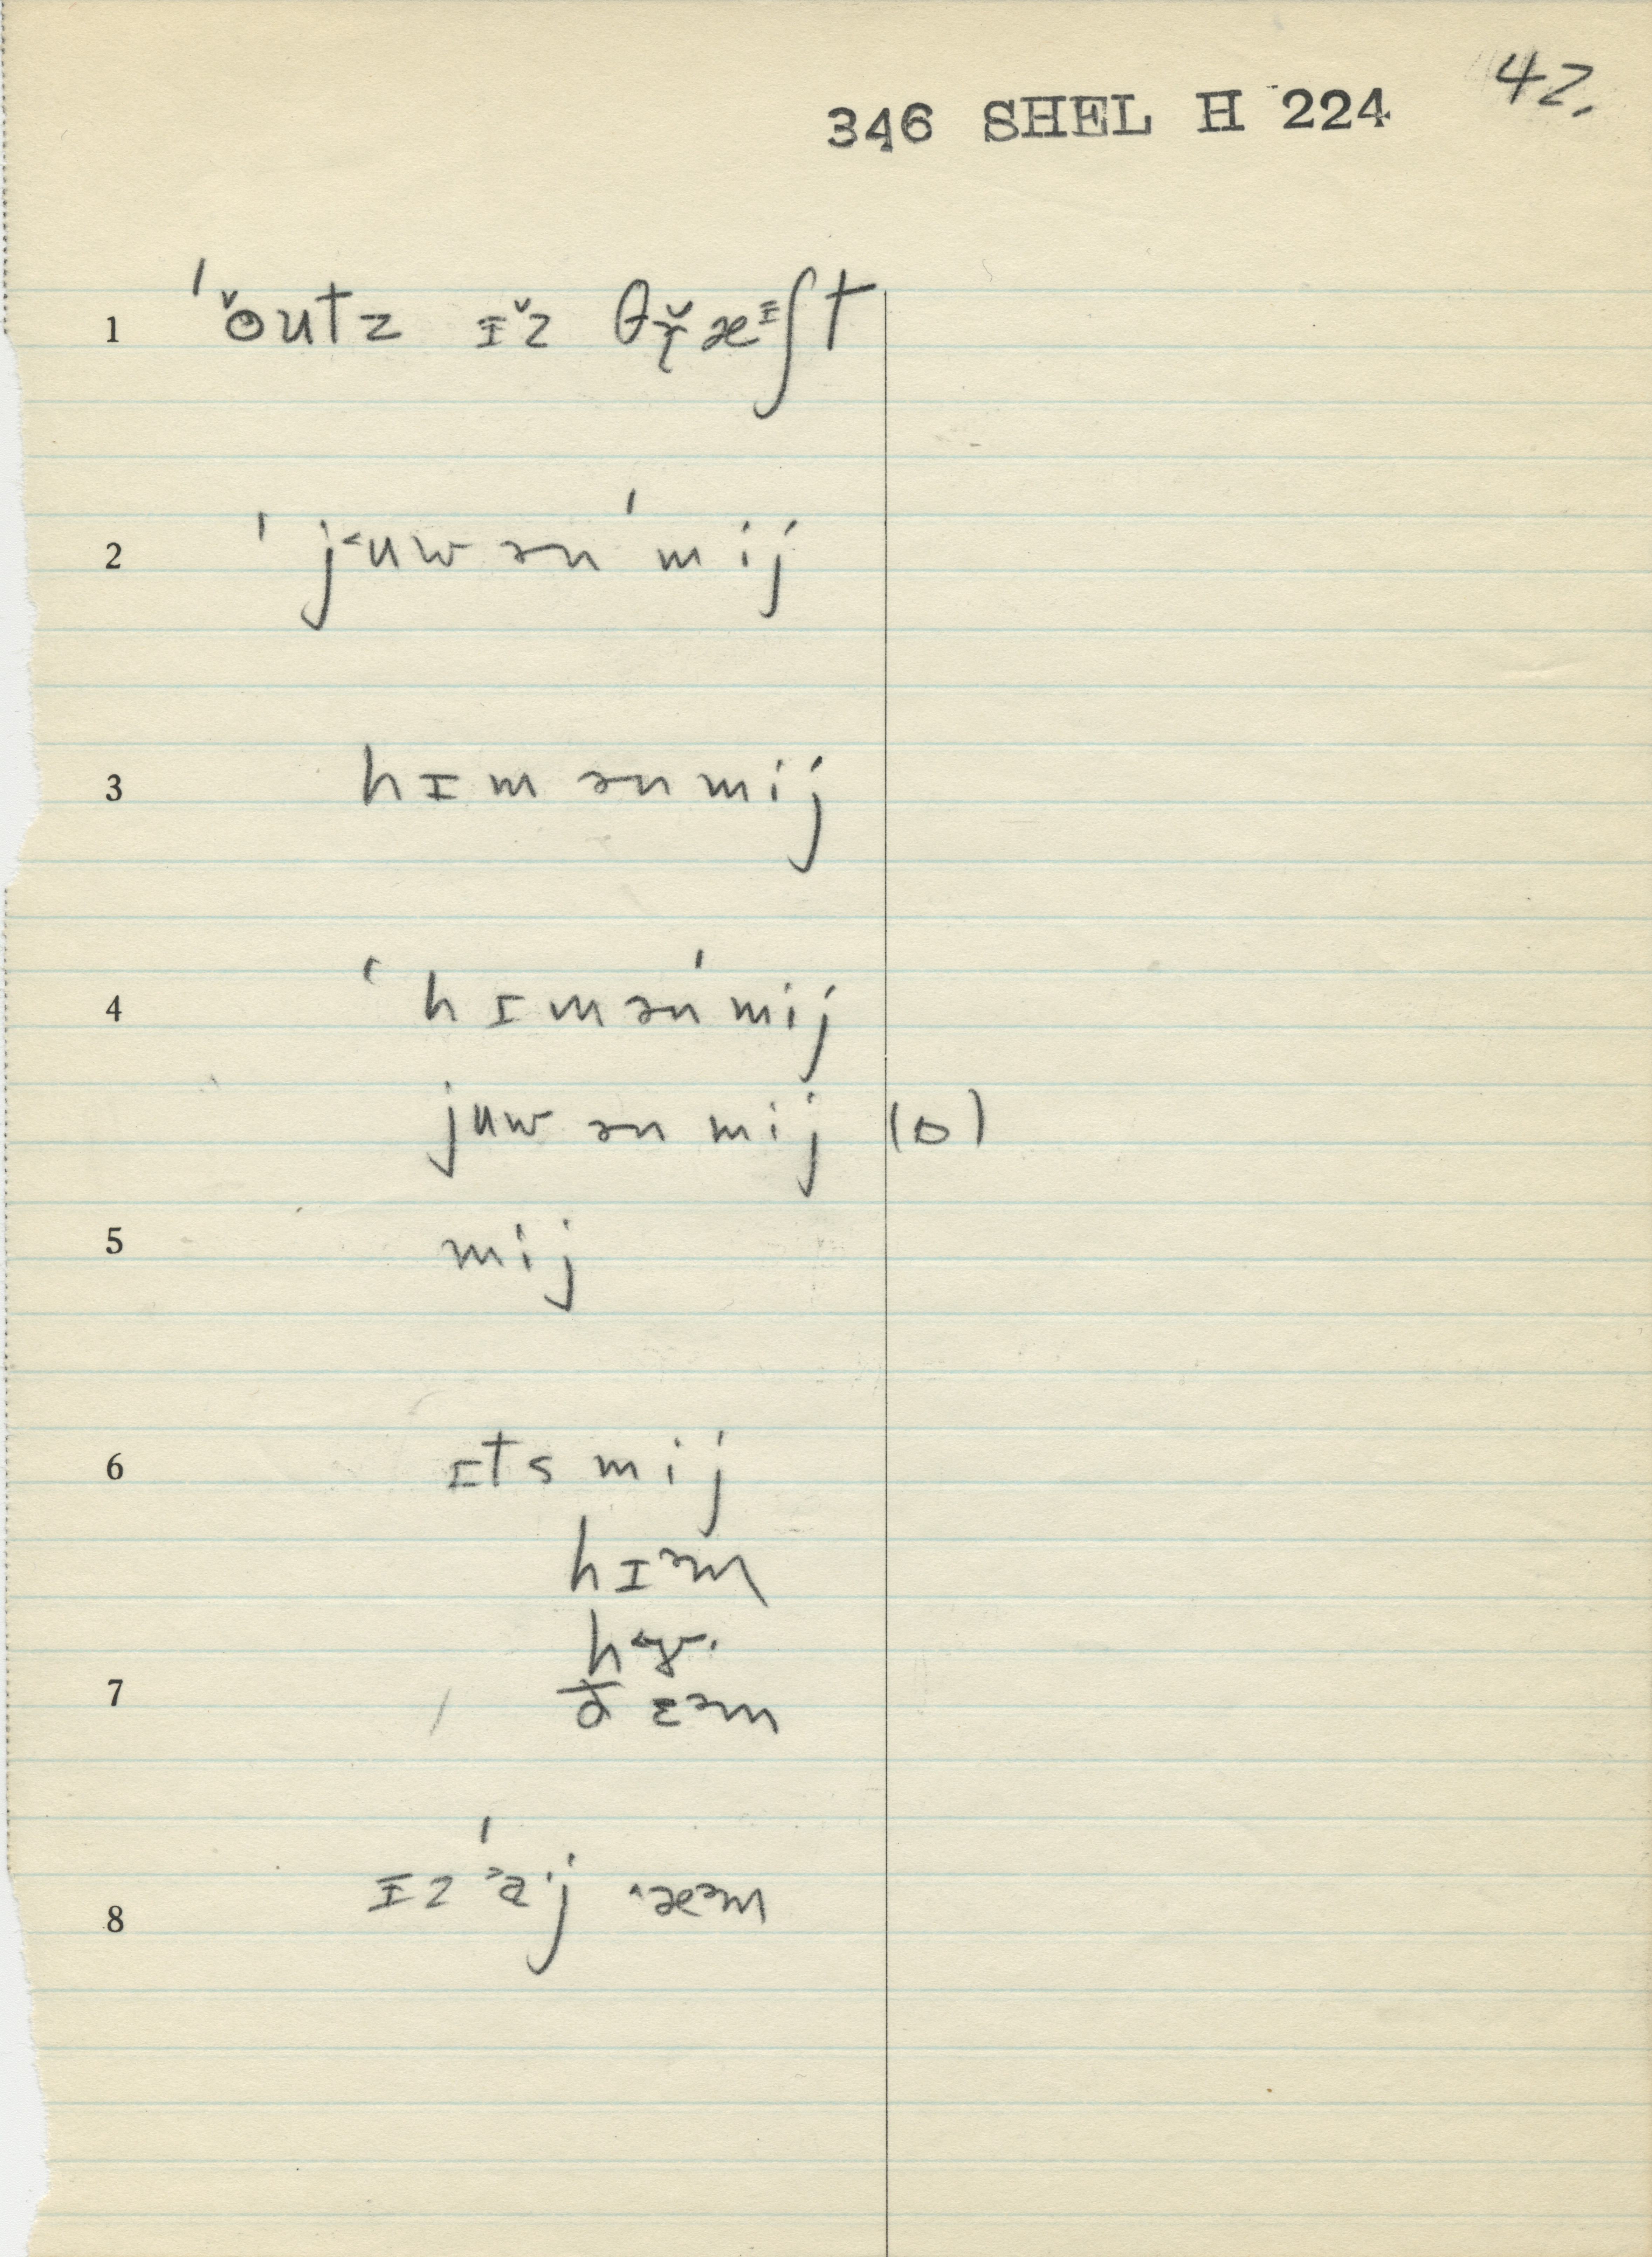 42.
346 SHEL H 224
1 ˈɵ̌utz ɪž θɾ̌æᶦʃt
2 ˈj˂uw ən ˈmij
3 hɪm ən mij
4 ˈhɪm ən ˈmij
juw ən mij (o)
5 mij
6 ɪts mij
hɪᵊm
7 ðɛᵊm
8 ɪz ˈa˙j ˄æᵊm